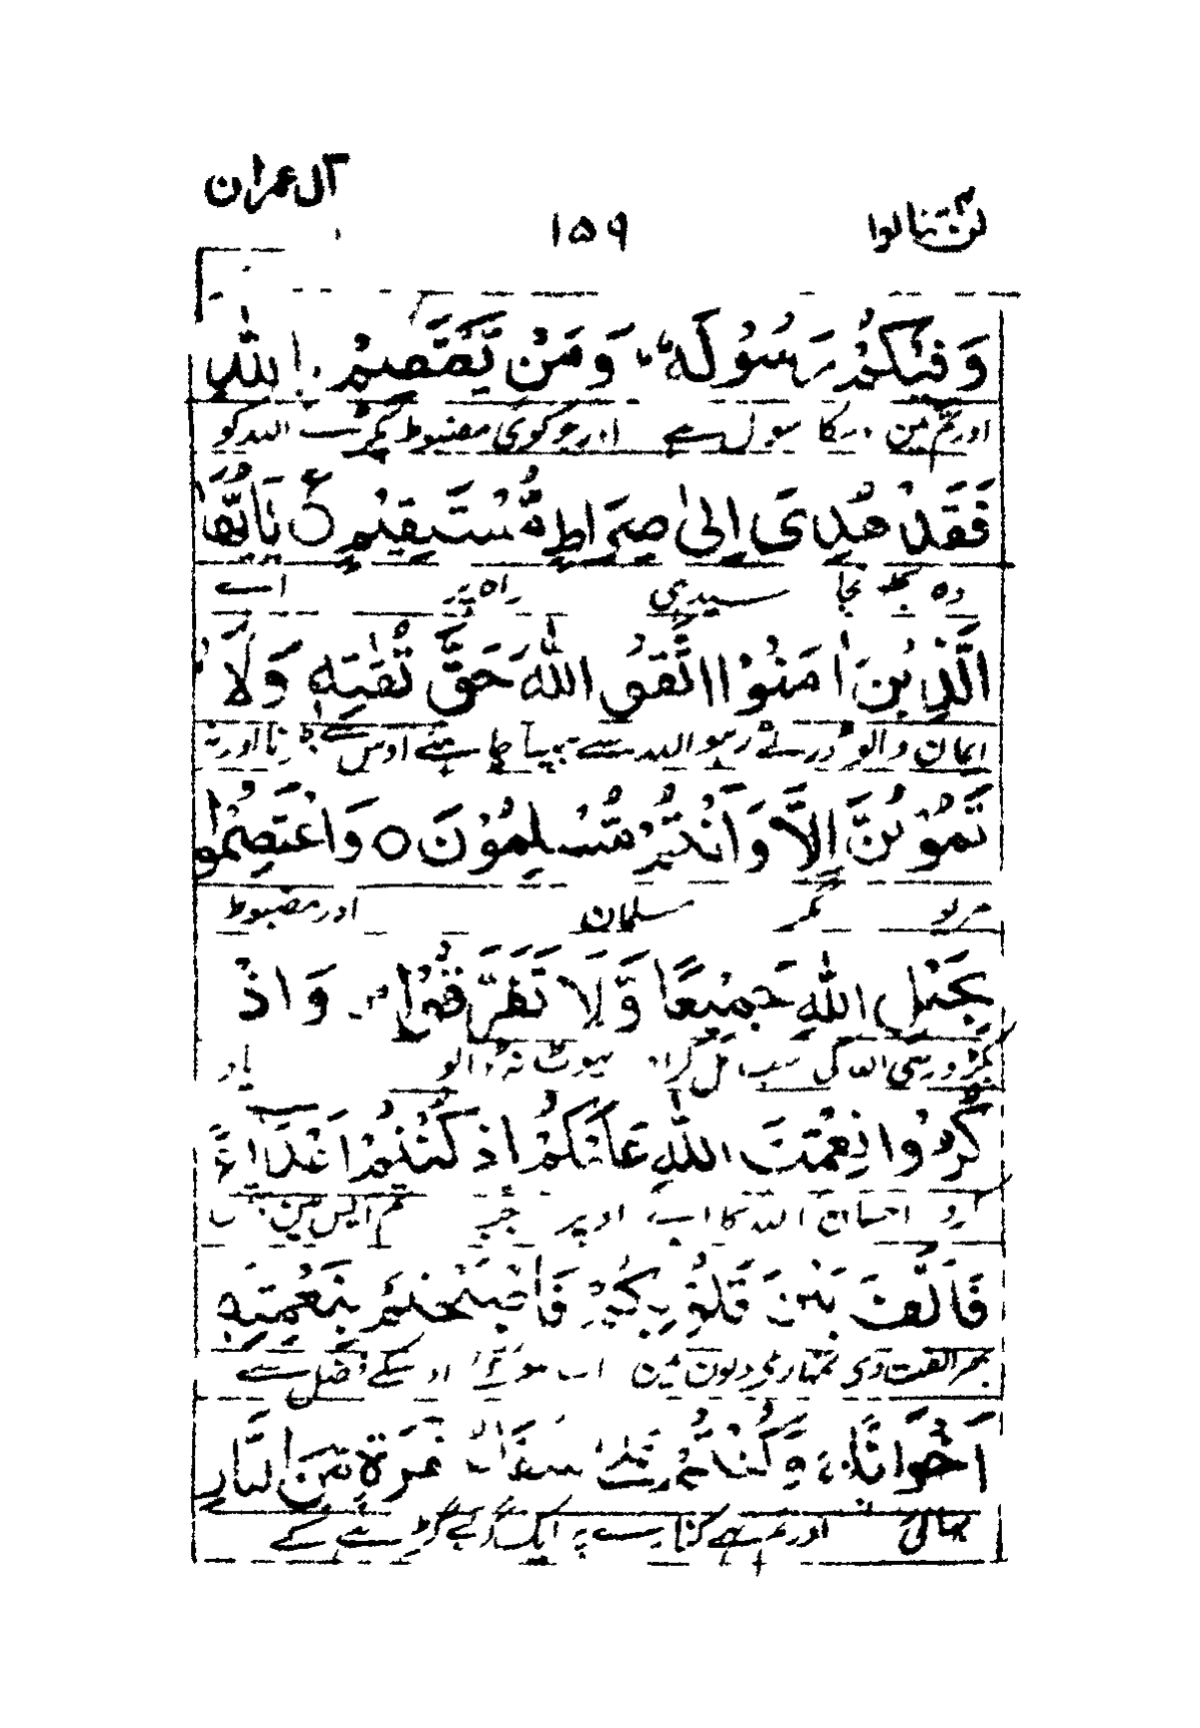 لن تنالوا ۱۵۹ آل عمران
وَفِيْكُمْ رَسُوْلُهٗ ؕ وَمَنْ يَّعْتَصِمْ بِاللّٰهِ
اور تم مین اسکا رسول ہے اور جو کوئی مضبوط پکڑے اللہ کو
فَقَدْ هُدِىَ اِلٰى صِرَاطٍ مُّسْتَقِيْمٍ يٰٓاَيُّهَا
وہ سیدہی راہ پر اے
الَّذِيْنَ اٰمَنُوا اتَّقُوا اللّٰهَ حَقَّ تُقٰىتِهٖ وَلَا
ایمان والو ڈرتے رہو اللہ سے جیسا چاہئے اوس سے ڈرنا اور نہ
تَمُوْتُنَّ اِلَّا وَاَنْتُمْ مُّسْلِمُوْنَ ○ وَاعْتَصِمُوْا
مریو مگر مسلمان اور مضبوط
بِحَبْلِ اللّٰهِ جَمِيْعًا وَّلَا تَفَرَّقُوْا وَاذْ
پکڑو رسی اللہ کی سب مل کر اور پھوٹ نہ ڈالو یاد
كُرُوْا نِعْمَتَ اللّٰهِ عَلَيْكُمْ اِذْ كُنْتُمْ اَعْدَآءً
کرو احسان اللہ کا اپنے اوپر جب تم آپس مین
فَاَلَّفَ بَيْنَ قُلُوْبِكُمْ فَاَصْبَحْتُمْ بِنِعْمَتِهٖٓ
پھر الفت دی تمہارے دلون مین اب ہو گئے اوسکے فضل سے
اِخْوَانًا ۚ وَكُنْتُمْ عَلٰى شَفَا حُفْرَةٍ مِّنَ النَّارِ
بھائی اور تم تھے کنارے پر ایک آگ کے گڑھے کے